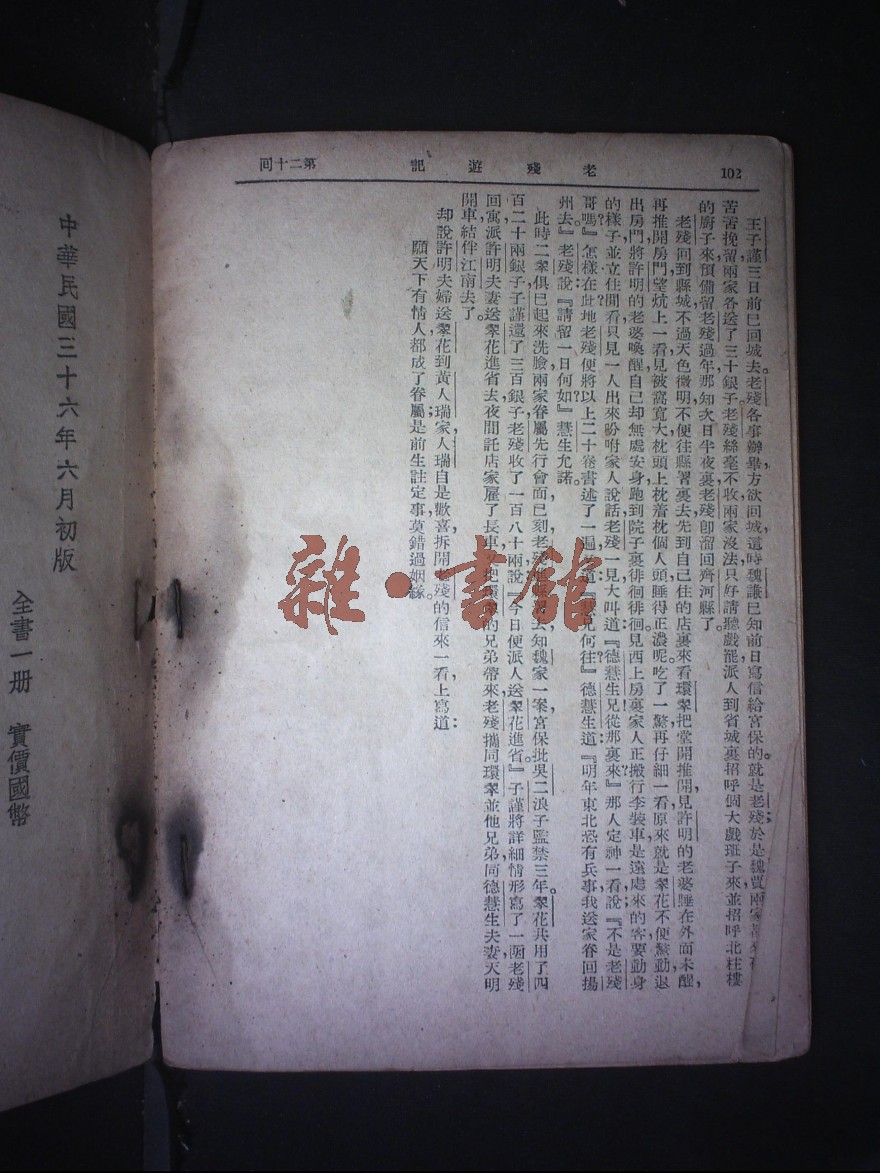 102
老殘遊記
第二十回
王子謹三日前已回城去。老殘各事辦畢，方欲回城，這時魏謙已知前日寫信給宮保的就是老殘，於是魏賈兩家
苦苦挽留，兩家各送了三千銀子，老殘絲毫不收，兩家沒法，只好請聽戲罷，派人到省城裏招呼個大戲班子來，並招呼北柱樓
的廚子來，預備留老殘過年。那知次日半夜裏，老殘即溜回齊河縣了。
老殘回到縣城，不過天色微明，不便往縣署裏去，先到自己住的店裏來看環翠，把堂門推開，見許明的老婆睡在外面未醒，
再推開房門，望炕上一看，見被窩寬大，枕頭上枕着枕個人頭，睡得正濃呢。吃了一驚，再仔細一看，原來就是翠花。不便驚動，退
出房門，將許明的老婆喚醒。自己却無處安身，跑到院子裏徘徊徘徊。見西上房裏，家人正搬行李裝車，是遠處來的客，要動身
的樣子，並立住閒看。只見一人出來吩咐家人說話。老殘一見，大叫道：『德慧生兄！從那裏來？』那人定神一看，說：『不是老殘
哥嗎？怎樣在此地？』老殘便將以上二十卷書述了一遍，道：『慧兄何往？』德慧生道：『明年東北恐有兵事，我送家眷回揚
州去。』老殘說：『請留一日何如？』慧生允諾。
此時二翠俱已起來洗臉，兩家眷屬先行會面。巳刻，老殘進縣署去，知魏家一案，宮保批吳二浪子監禁三年。翠花共用了四
百二十兩銀子，子謹還了三百銀子，老殘收了一百八十兩，說：『今日便派人送翠花進省。』子謹將詳細情形寫了一函。老殘
回寓派許明夫妻送翠花進省去，夜間託店家雇了長車，又把環翠的兄弟帶來，老殘攜同環翠並他兄弟同德慧生夫妻天明
開車，結伴江南去了。
却說許明夫婦送翠花到黃人瑞家，人瑞自是歡喜，拆開老殘的信來一看，上寫道：
願天下有情人，都成了眷屬；是前生註定事，莫錯過姻緣。
中華民國三十六年六月初版
全書一册　實價國幣
雜·書館